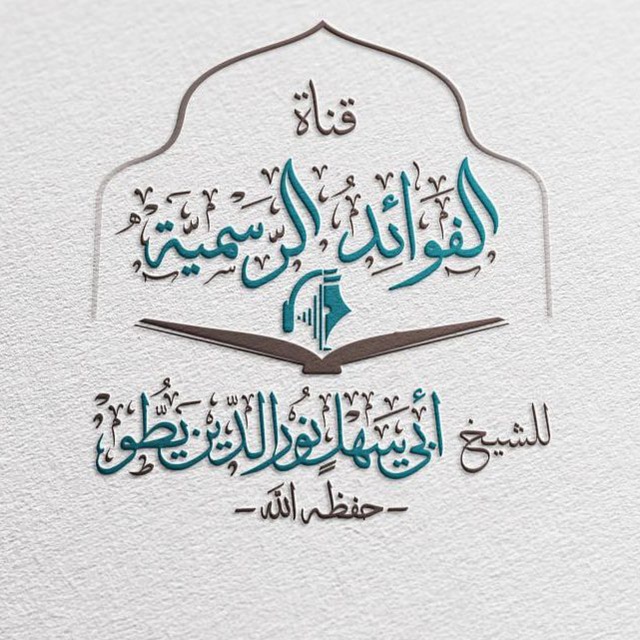 قناة
الفوائد الرسمية
للشيخ أبي سهل نور الدين يطو
- حفظه الله -